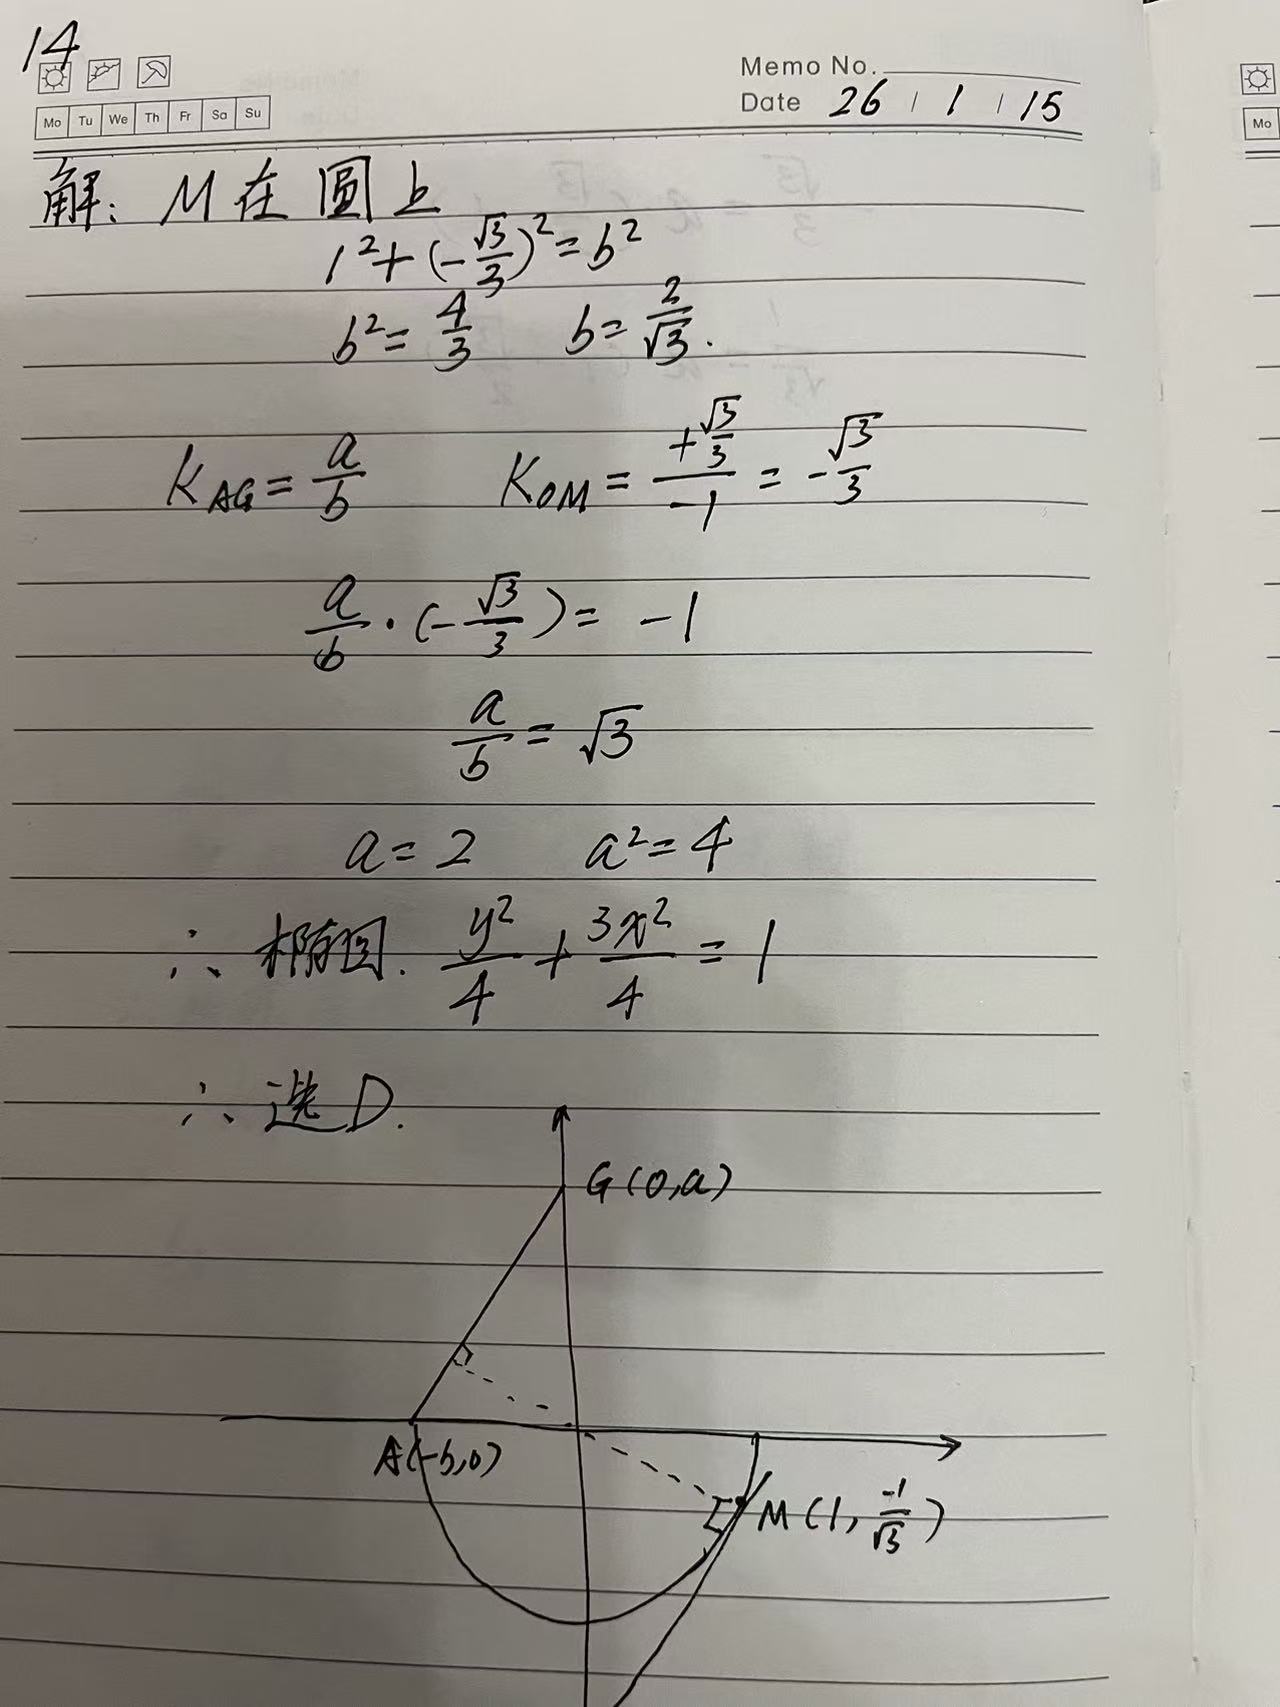 14
Memo No.
Mo Tu We Th Fr Sa Su
Date 26 / 1 / 15
Mo
解: M在圆上
1²+(-√3/3)²=b²
b²=4/3 b=2/√3.
K_AG=a/b K_OM=(+√3/3)/(-1)=-√3/3
a/b·(-√3/3)=-1
a/b=√3
a=2 a²=4
∴椭圆. y²/4+3x²/4=1
∴选D.
G(0,a)
A(-b,0)
M(1,-1/√3)